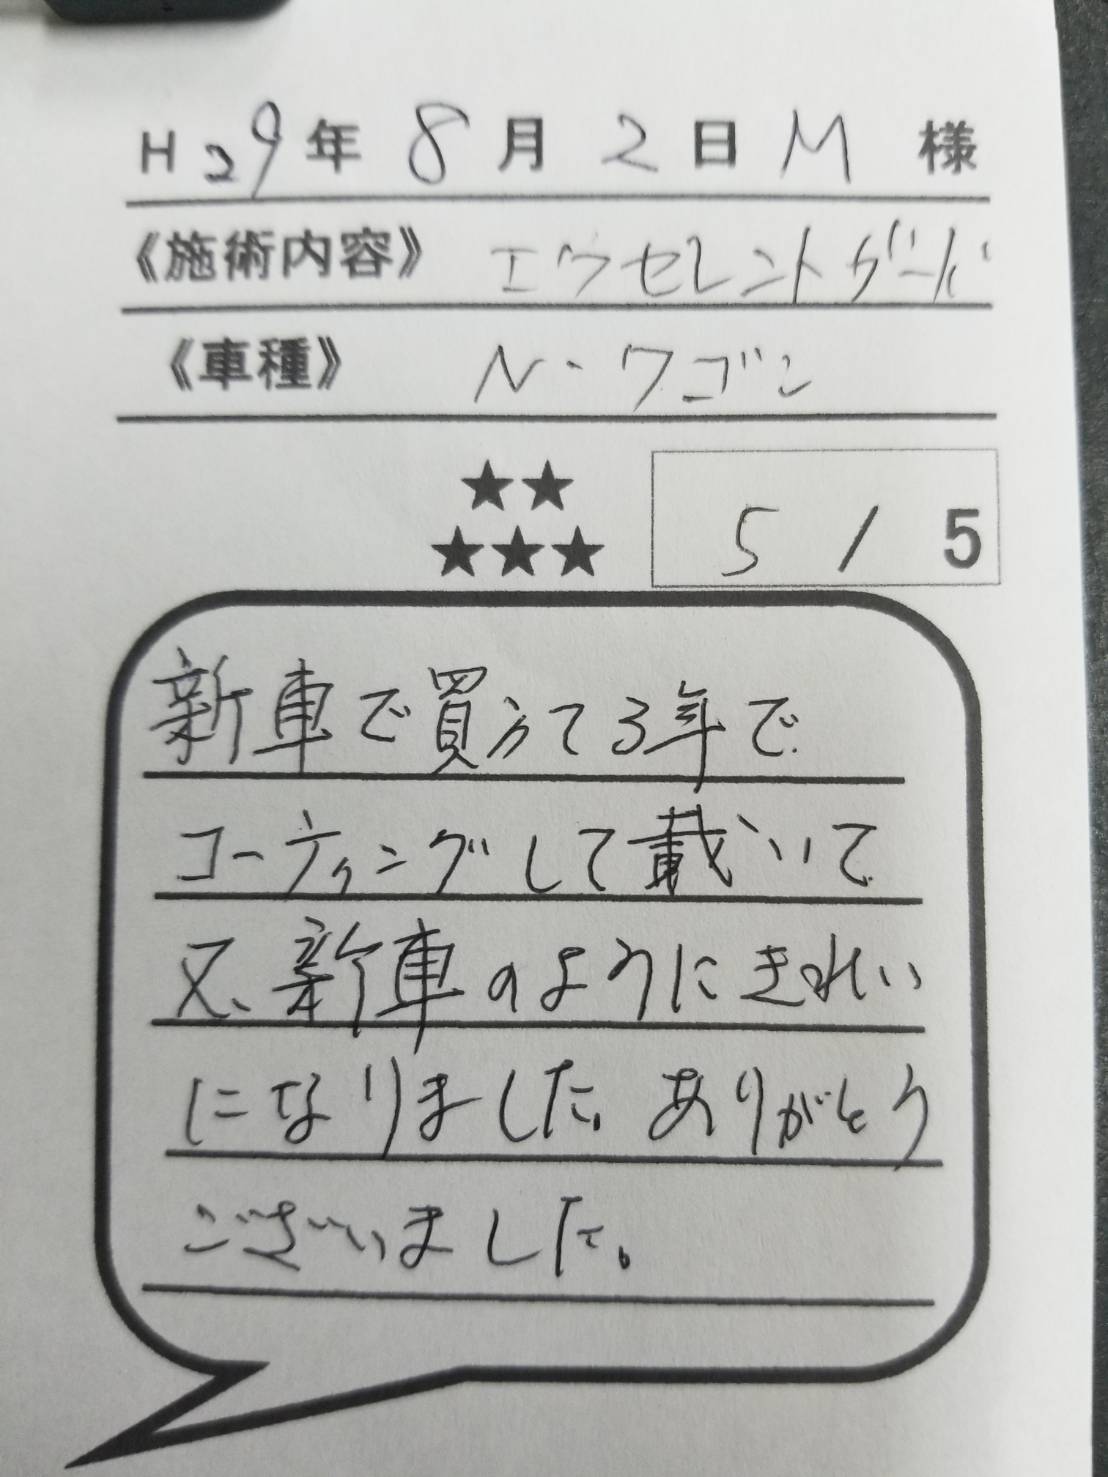 H29年 8月 2日 M 様
《施術内容》 エクセレントガード
《車種》 N-ワゴン
★★
★★★ 5 / 5
新車で買って3年で
コーティングして載いて
又、新車のようにきれい
になりました。ありがとう
ございました。